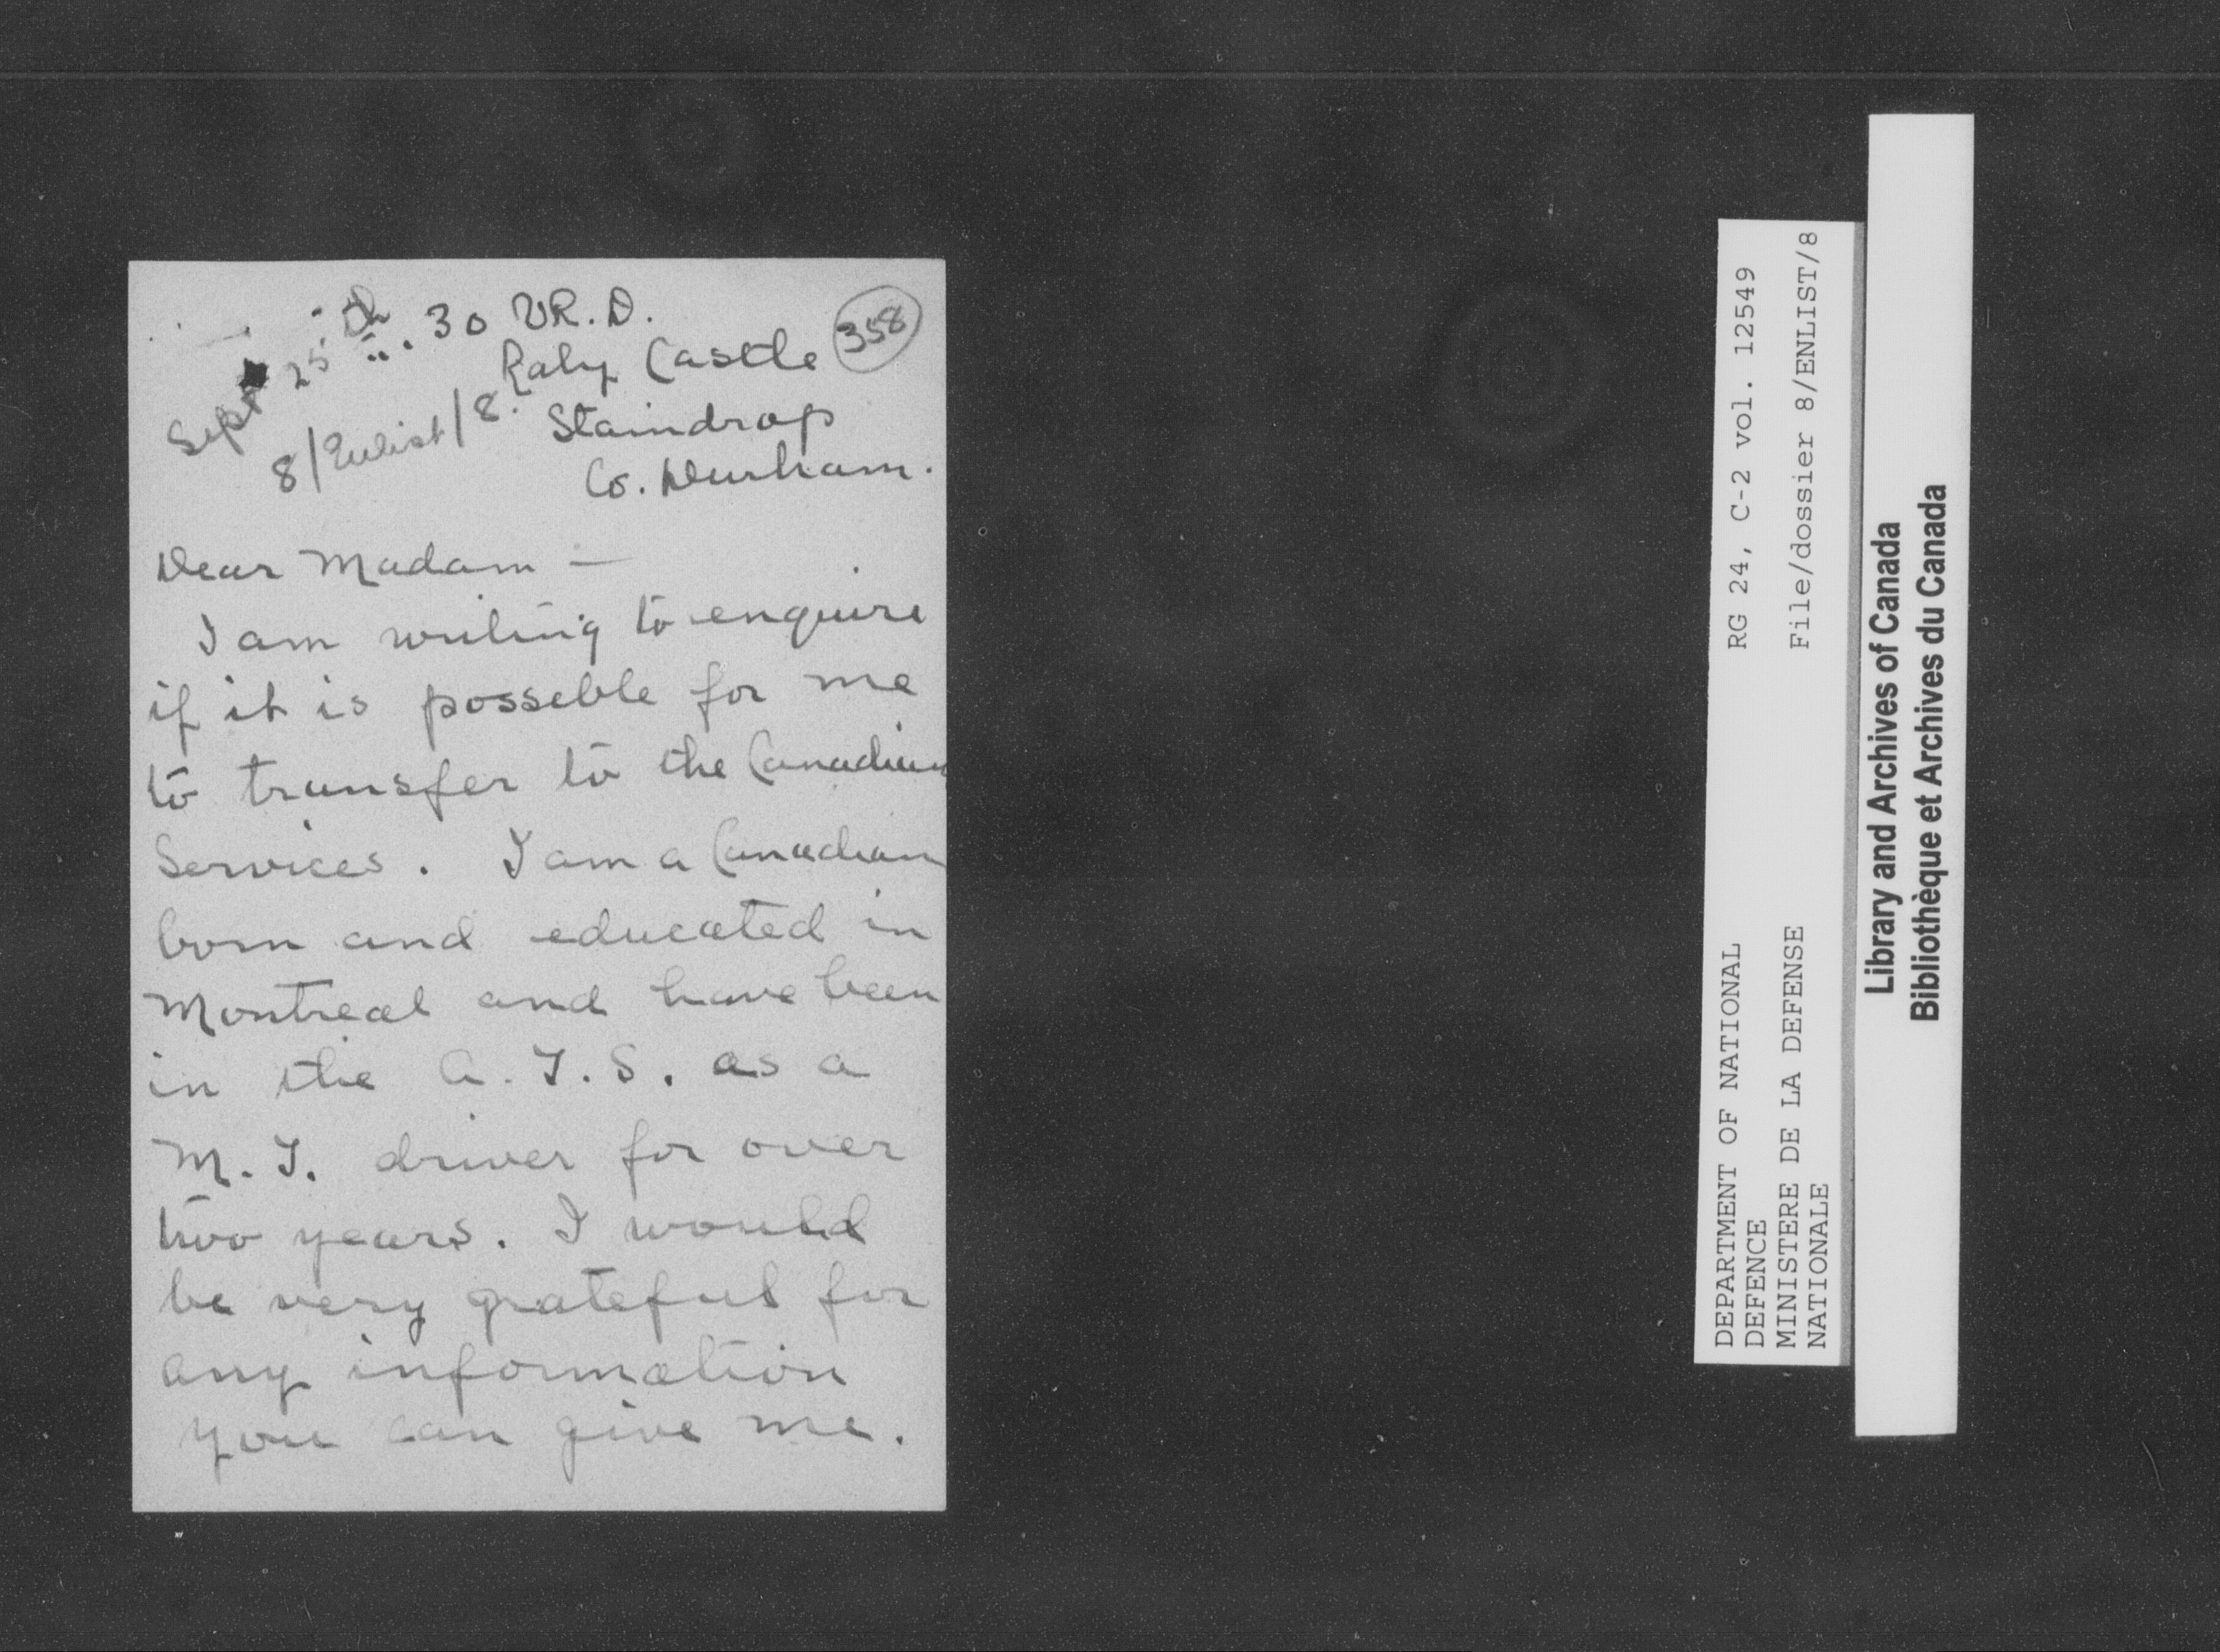 Sept 25th
30 V.R.D.
358
Raby Castle
8/Enlist/8.
Staindrop
Co. Durham.
Dear Madam —
I am writing to enquire
if it is posseble for me
to transfer to the Canadian
Services. I am a Canadian
born and educated in
Montreal and have been
in the A.T.S. as a
M.T. driver for over
two years. I would
be very grateful for
any information
you can give me.
DEPARTMENT OF NATIONAL
DEFENCE
MINISTERE DE LA DEFENSE
NATIONALE
RG 24, C-2 vol. 12549
File/dossier 8/ENLIST/8
Library and Archives of Canada
Bibliothèque et Archives du Canada